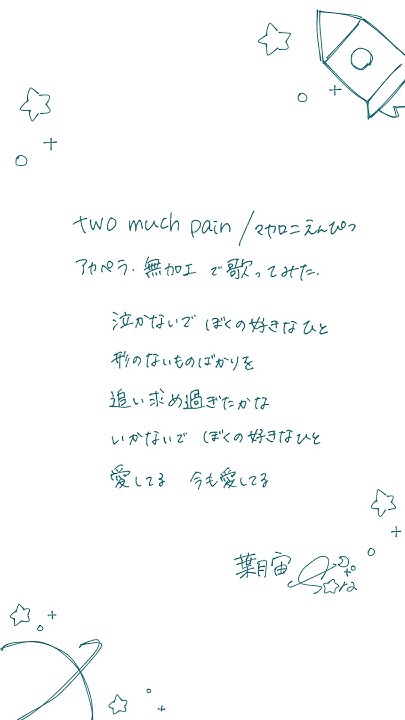 two much pain/マカロニえんぴつ
アカペラ.無加工で歌ってみた.
泣かないで ぼくの好きなひと
形のないものばかりを
追い求め過ぎたかな
いかないで ぼくの好きなひと
愛してる 今も愛してる
葉月宙